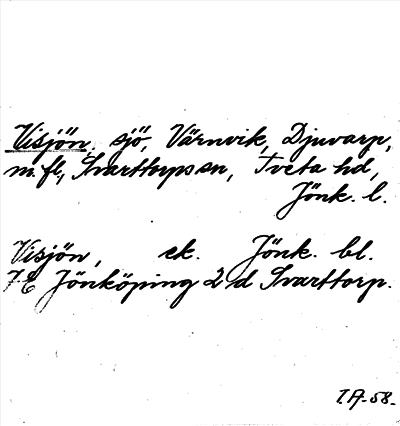 Visjön, sjö, Värnvik, Djuvarp,
m.fl., Svarttorps sn, Tveta hd,
Jönk. l.
Visjön, ek. Jönk. bl.
7E Jönköping 2 d Svarttorp.
I.A-58.